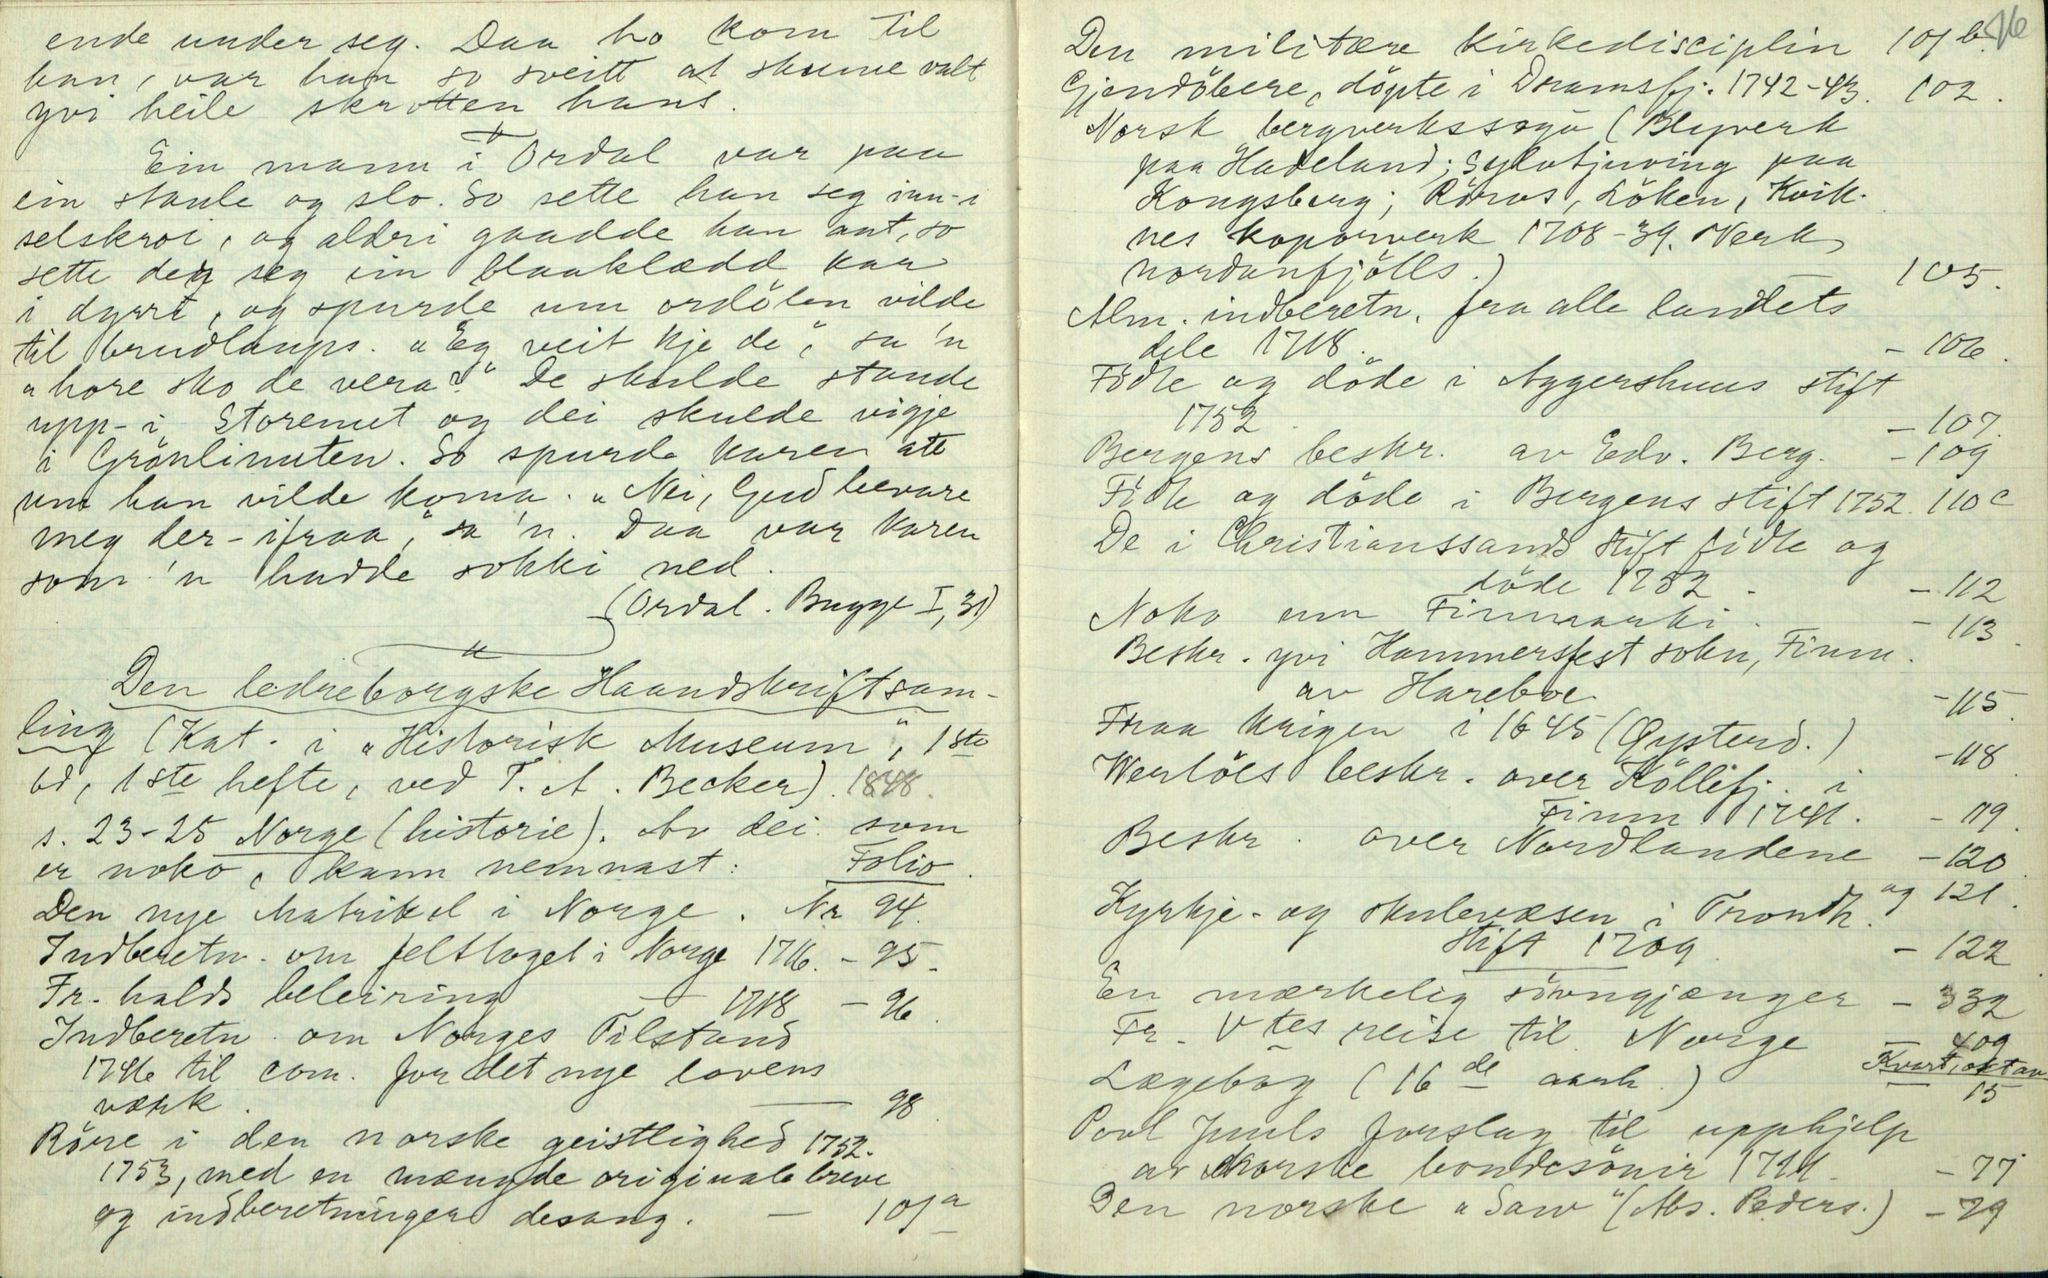 ende under seg. Daa ho kom til
han, var han so sveitt at skume valt
yvi heile skrotten hans.
Ein mann i Ordal var paa
ein staule og slo. So sette han seg inn-i
selskroi, og aldri gaadde han ant, so
sette dey seg ein blaaklædd kar
i dyrri, og spurde um ordölen vilde
til brudlaups. „Eg veit kje de", sa 'n
„hore sko de vera?" De skulde stande
upp-i Storenut og dei skulde vigje
i Grönlinuten. So spurde karen ate
um han vilde koma. „Nei, Gud bevare
meg der-ifraa", sa 'n. Daa var karen
som 'n hadde sokki ned.
(Ordal. Bugge I, 31)
Den ledreborgske Haandskriftsam-
ling (Kat. i „Historisk Museum", 1ste
bd, 1ste hefte, ved T. A. Becker). 1848.
s. 23-25 Norge (historie). Av dei som
er noko, kann nemnast: Folio.
Den nye Matrikel i Norge. Nr 94.
Indberetn. om felttoget i Norge 1716. - 95.
Fr.halds beleiring — 1718 - 96.
Indberetn. om Norges Tilstand
1746 til com. for det nye lovens
værk. — 98.
Röre i den norske geistlighed 1752.
1753, med en mængde originale breve
og indberetninger desang. — 101a
16
Den militære kirkedisciplin 101b.
Gjendöbere, döpte i Dramsfj. 1742-43. 102.
Norsk bergverkssogu (Blyverk
paa Hadeland; sylvtjuving paa
Kongsberg; Röros, Löken, Kvik-
nes koparverk 1708-39. Verk
nordanfjölls.) — 105.
Alm. indberetn. fra alle landets
dele 1718. - 106.
Födte og döde i Aggershuus stift
1752. - 107.
Bergens beskr. av Edv. Berg. - 109
Födte og döde i Bergens stift 1752. 110c
De i Christianssands stift födte og
döde 1752. - 112
Noko um Finnmarki. - 113.
Beskr. yvi Hammersfest sokn, Finnm.
av Hareboe. - 115.
Fraa krigen i 1645 (Gysterd.) - 118.
Werlöes beskr. over Köllefj. i
Finm 1741. - 119.
Beskr. over Nordlandene - 120
og 121.
Kyrkje- og skulevæsen i Trondh.
stift 1709. - 122
En mærkelig sövngjænger - 332
Fr. Vtes reise til Norge - 409
Kvart, oktav
Lægebog (16de aarh.) — 15
Povl Juuls forslag til upphjelp
av norske bondesönir 1711. - 77
Den norske „Saw" (Abs. Peders.) - 79